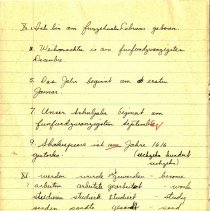 IX. Ich bin am funfzehnten Februar geboren.
3. Weihnachten is am funfundzwanzigsten
Dezember.
5. Das Jahr beginnt am ersten
Januar.
7. Unser Schuljahr beginnt am
funfundzwanzigsten September
9. Shakespeare ist im Jahre 1616
gestorben. (sechzehn hundert
sechzehn)
XI werden wurde geworden - become
arbeiten arbeitete gearbeitet - work
studieren studiert - study
senden sandte gesandt - send